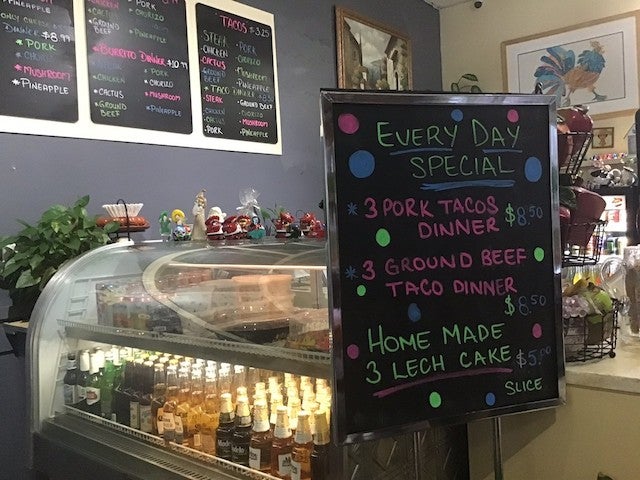 PINEAPPLE
ONLY CHEESE
DINNER $8.99
* PORK
* CHORIZO
* MUSHROOM
* PINEAPPLE
CHICKEN
CACTUS
GROUND
BEEF
PORK
CHORIZO
PINEAPPLE
* BURRITO DINNER $10.99
* CHICKEN
* CACTUS
* GROUND
BEEF
* PORK
* CHORIZO
* MUSHROOM
* PINEAPPLE
TACOS $3.25
STEAK
CHICKEN
CACTUS
GROUND
BEEF
PORK
CHORIZO
MUSHROOM
PINEAPPLE
* TACO DINNER
STEAK
CHICKEN
CACTUS
PORK
CHORIZO
GROUND BEEF
MUSHROOM
PINEAPPLE
EVERY DAY
SPECIAL
* 3 PORK TACOS
DINNER $8.50
* 3 GROUND BEEF
TACO DINNER
$8.50
HOME MADE
3 LECH CAKE
SLICE
Modelo